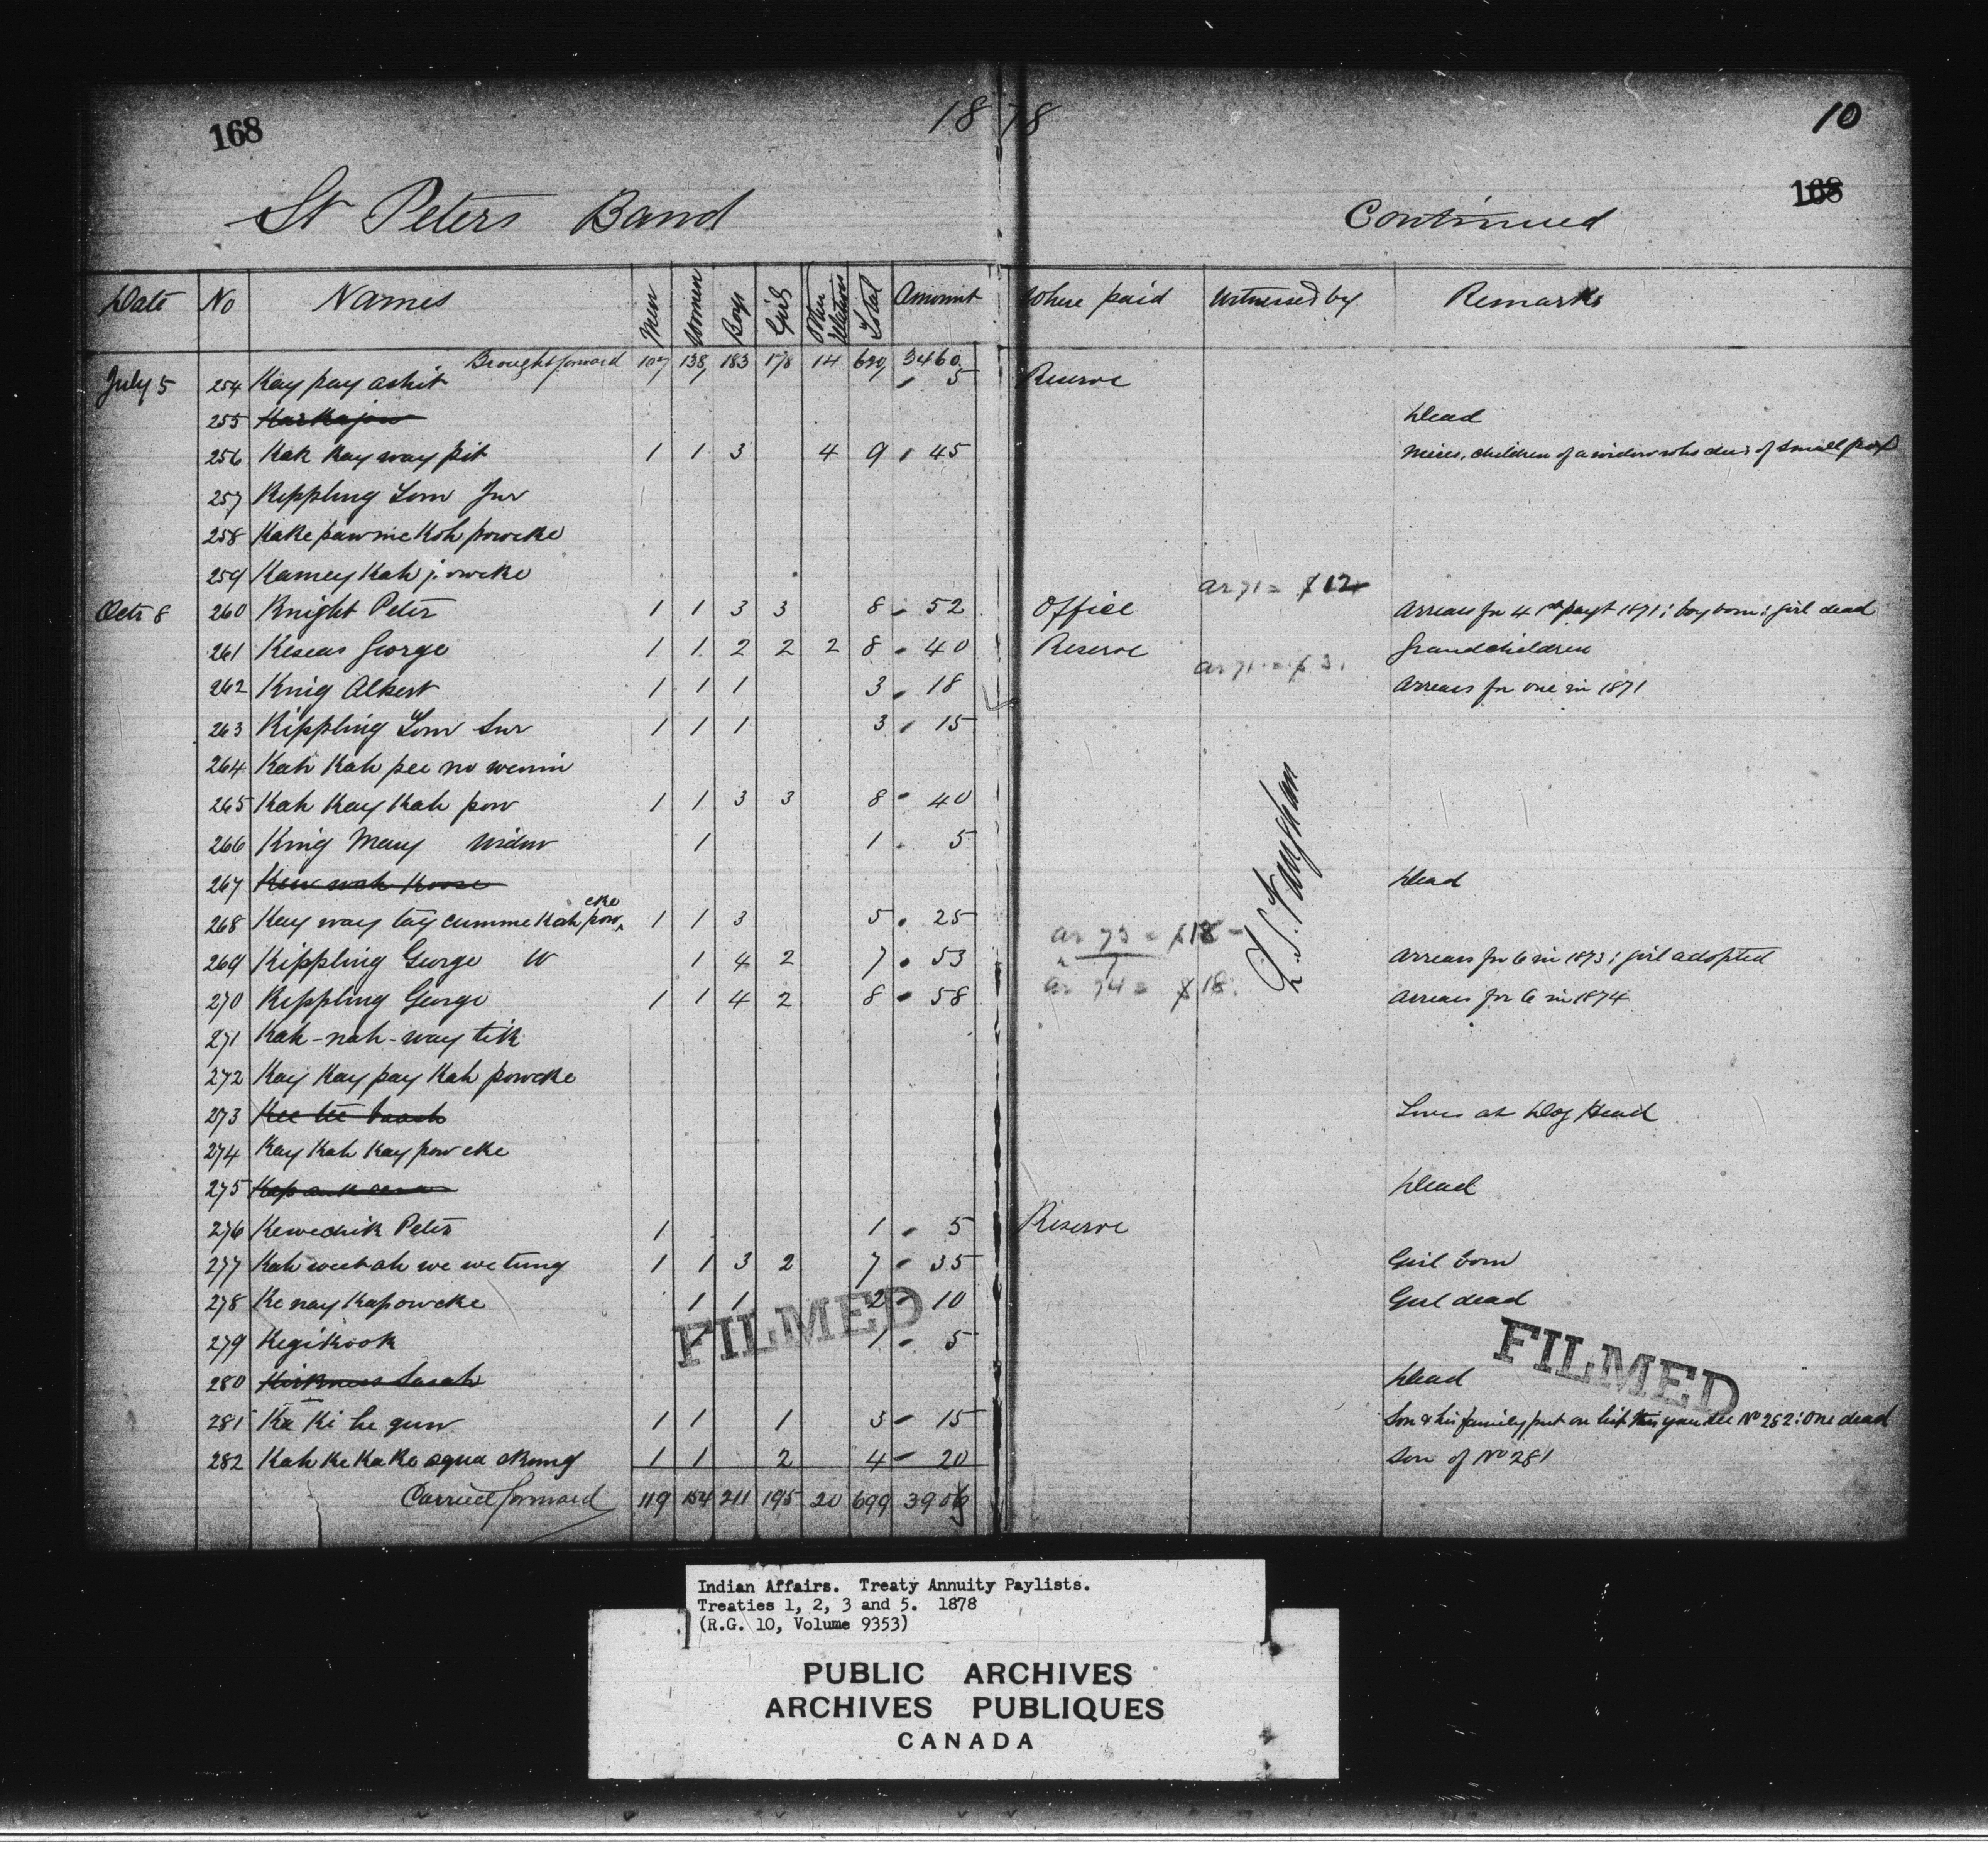 168
1878
10
168
St Peters Band Continued
Date No Names Men Women Boys Girls Other Relatives Total Amount Where paid Witnessed by Remarks
Brought forward 107 138 183 178 14 620 3460
July 5 254 Kay pay ashit 5 Reserve
255 Dead
256 Kak Kay way pit 1 1 3 4 9 45 Nieces, children of a widow who died of small pox
257 Kippling Tom Jnr
258 Kake paw me Koh powcke
259 Kamey Kah powcke
ar 71 = $12
Octr 8 260 Knight Peter 1 1 3 3 8 52 Office Arrears for 4 1st payt 1871; boy born; girl dead
261 Keseas George 1 1 2 2 2 8 40 Reserve Grandchildren
ar 71 = $3.
262 King Albert 1 1 1 3 18 Arrears for one in 1871
263 Kippling Tom Snr 1 1 1 3 15
264 Kah Kah pee no wenin
265 Kah Kay Kah pow 1 1 3 3 8 40
266 King Mary Widow 1 1 5
267 Kew wah Koose Dead
268 Kay way tay cumme Kah powcke 1 1 3 5 25
ar 73 = $18
269 Kippling George W 1 4 2 7 53 Arrears for 6 in 1873; girl adopted
ar 74 = $18.
270 Kippling George 1 1 4 2 8 58 Arrears for 6 in 1874
271 Kah-nah-way tik
272 Kay Kay pay Kah powcke
273 Lives at Dog Head
274 Kay Kah Kay powcke
275 Dead
276 Kewechik Peter 1 1 5 Reserve
277 Kah weetah we we tung 1 1 3 2 7 35 Girl born
278 Ke nay Kapowcke 1 1 2 10 Girl dead
279 Kegikook 1 1 5
280 Kirkness Sarah Dead
281 Ka Ki he gun 1 1 1 3 15 Son & his family put on list this year see No 282; One dead
282 Kah Ke Ka Ke aqua skung 1 1 2 4 20 Son of No 281
Carried forward 119 154 211 195 20 699 3906
FILMED
FILMED
Indian Affairs. Treaty Annuity Paylists.
Treaties 1, 2, 3 and 5. 1878
(R.G. 10, Volume 9353)
PUBLIC ARCHIVES
ARCHIVES PUBLIQUES
CANADA